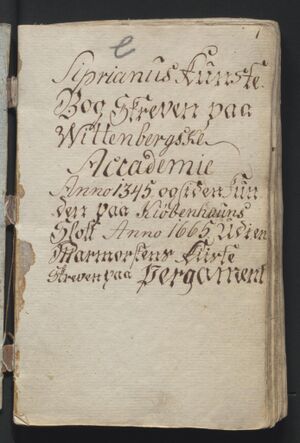 e
1
Siprianus Kunste
Bog Skreven paa
Wittenbergske
Accademie
Anno 1345 og siden fun
den paa Kiøbenhauns
Slott Anno 1665 Udi en
Marmorstens Kiiste
Skreven paa Pergament